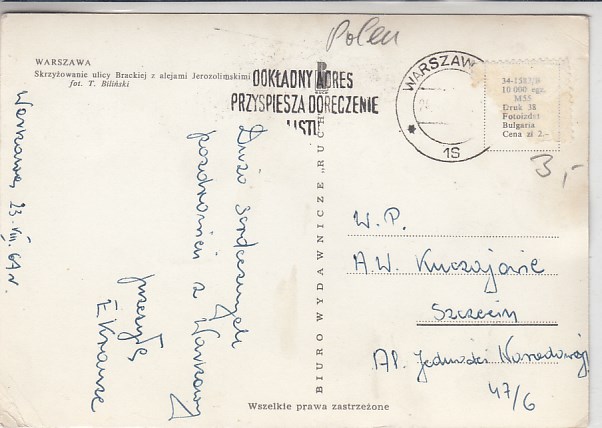 Polen
WARSZAWA
Skrzyżowanie ulicy Brackiej z alejami Jerozolimskimi
fot. T. Biliński
DOKŁADNY ADRES
PRZYSPIESZA DORĘCZENIE
LISTU
WARSZAWA
* 1S
34-1587/P
10 000 egz.
M55
Druk 38
Fotoizdat
Bulgaria
Cena zł 2.-
3,-
Warszawa, 23. VIII. 64 r.
Dużo serdecznych
pozdrowień z Warszawy
przesyła
E Krause
BIURO WYDAWNICZE „RUCH"
W. P.
A. W. Kuczajowie
Szczecin
Al. Jedności Narodowej
47/6
Wszelkie prawa zastrzeżone